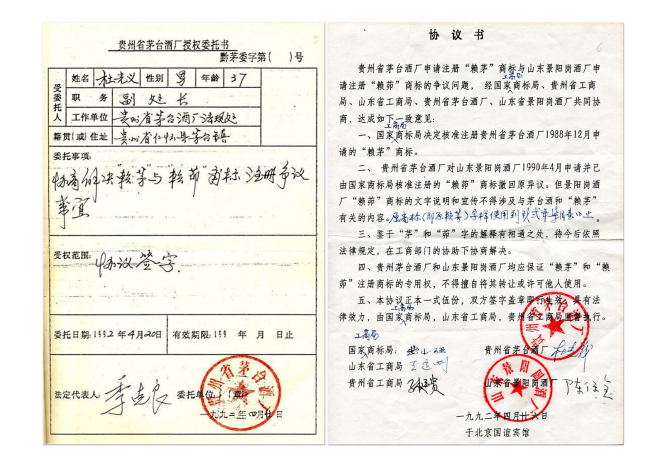 贵州省茅台酒厂授权委托书
黔茅委字第( )号
受委托人
姓名 杜光义 性别 男 年龄 37
职务 副处长
工作单位 贵州省茅台酒厂法规处
籍贯(或)住址 贵州省仁怀县茅台镇
委托事项:
协商解决"赖茅"与"赖茆"商标注册争议
事宜
受权范围:
协议签字
委托日期:1992年4月20日 有效期限:199 年 月 日止
法定代表人: 季克良 委托单位: (章)
贵州省茅台酒厂
一九九二年四月廿日
协议书
贵州省茅台酒厂申请注册"赖茅"商标与山东景阳岗酒厂申
请注册"赖茆"商标的争议问题, 经国家工商局商标局、贵州省工商
局、山东省工商局、贵州省茅台酒厂、山东省景阳岗酒厂共同协
商, 达成如下一致意见:
一、国家工商局商标局决定核准注册贵州省茅台酒厂1988年12月申
请的"赖茅"商标。
二、 贵州省茅台酒厂对山东景阳岗酒厂1990年4月申请并已
由国家商标局核准注册的"赖茆"商标撤回原异议。但景阳岗酒
厂"赖茆"商标的文字说明和宣传不得涉及与茅台酒和"赖茅"
有关的内容。
三、鉴于"茅"和"茆"字的解释有相通之处, 待今后依照
法律规定, 在工商部门的协助下协商解决。
四、贵州省茅台酒厂和山东景阳岗酒厂均应保证"赖茅"和"赖
茆"注册商标的专用权, 不得擅自将其转让或许可他人使用。
五、本协议正本一式伍份, 双方签字盖章即行生效, 具有法
律效力, 由国家工商局商标局, 山东省工商局, 贵州省工商局监督执行。
国家工商局商标局: 贵州省茅台酒厂
山东省工商局:
贵州省工商局: 山东省景阳岗酒厂
贵州省茅台酒厂
山东景阳岗酒厂
一九九二年四月廿六日
于北京国谊宾馆